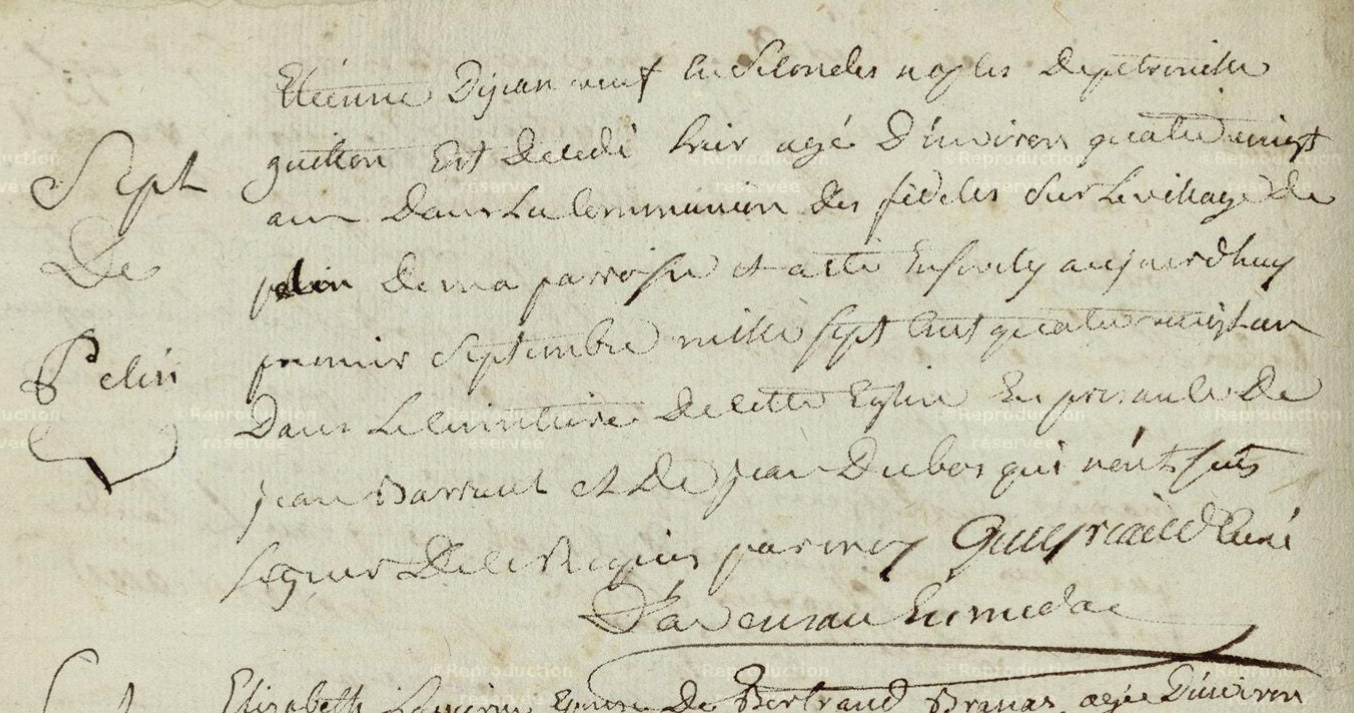 Etienne Dejean veuf en secondes nopces de petronille
guitton Est decedé hier agé D'environ quatre vingt
ans Dans La Communion des fidelles Sur Le village de
pelin de ma parroisse et a eté Ensevely aujourdhuy
premier Septembre mille sept cent quatre vingt un
Dans Le Cimitiere De cette Eglise En presence De
jean Barraud et De jean Dubos qui n'ont sceu
signer De ce Requis par moy Curé
D'avensan En medoc
Sept
De
Pelin
Elizabeth Epouse De Bertrand Branas agée D'environ